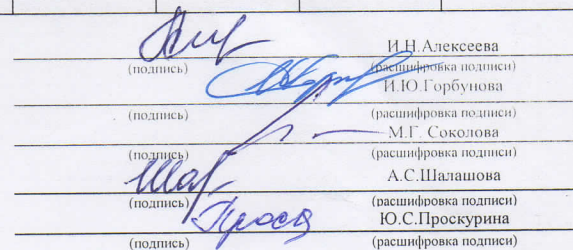 И.Н.Алексеева
(подпись) (расшифровка подписи)
И.Ю.Горбунова
(подпись) (расшифровка подписи)
М.Г. Соколова
(подпись) (расшифровка подписи)
А.С.Шалашова
(подпись) (расшифровка подписи)
Ю.С.Проскурина
(подпись) (расшифровка подписи)